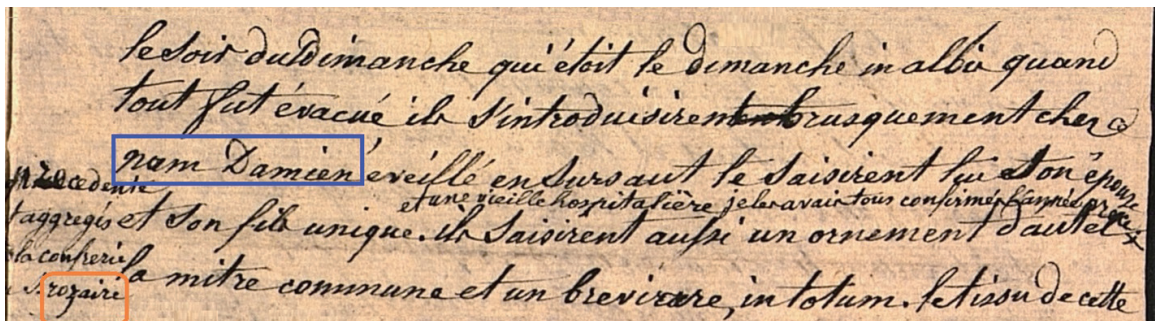 le soir du Dimanche qui étoit le dimanche in albis quand
tout fut évacué ils s'introduisirent brusquement chez
nam Damien éveillé en sursaut le saisirent lui son épouse
et une vieille hospitalière je les avais tous confirmés l'année
précédente
et son fils unique. ils saisirent aussi un ornement d'autel
aggregés
la confrerie
la mitre commune et un breviaire, in totum. le tissu de cette
S. rozaire